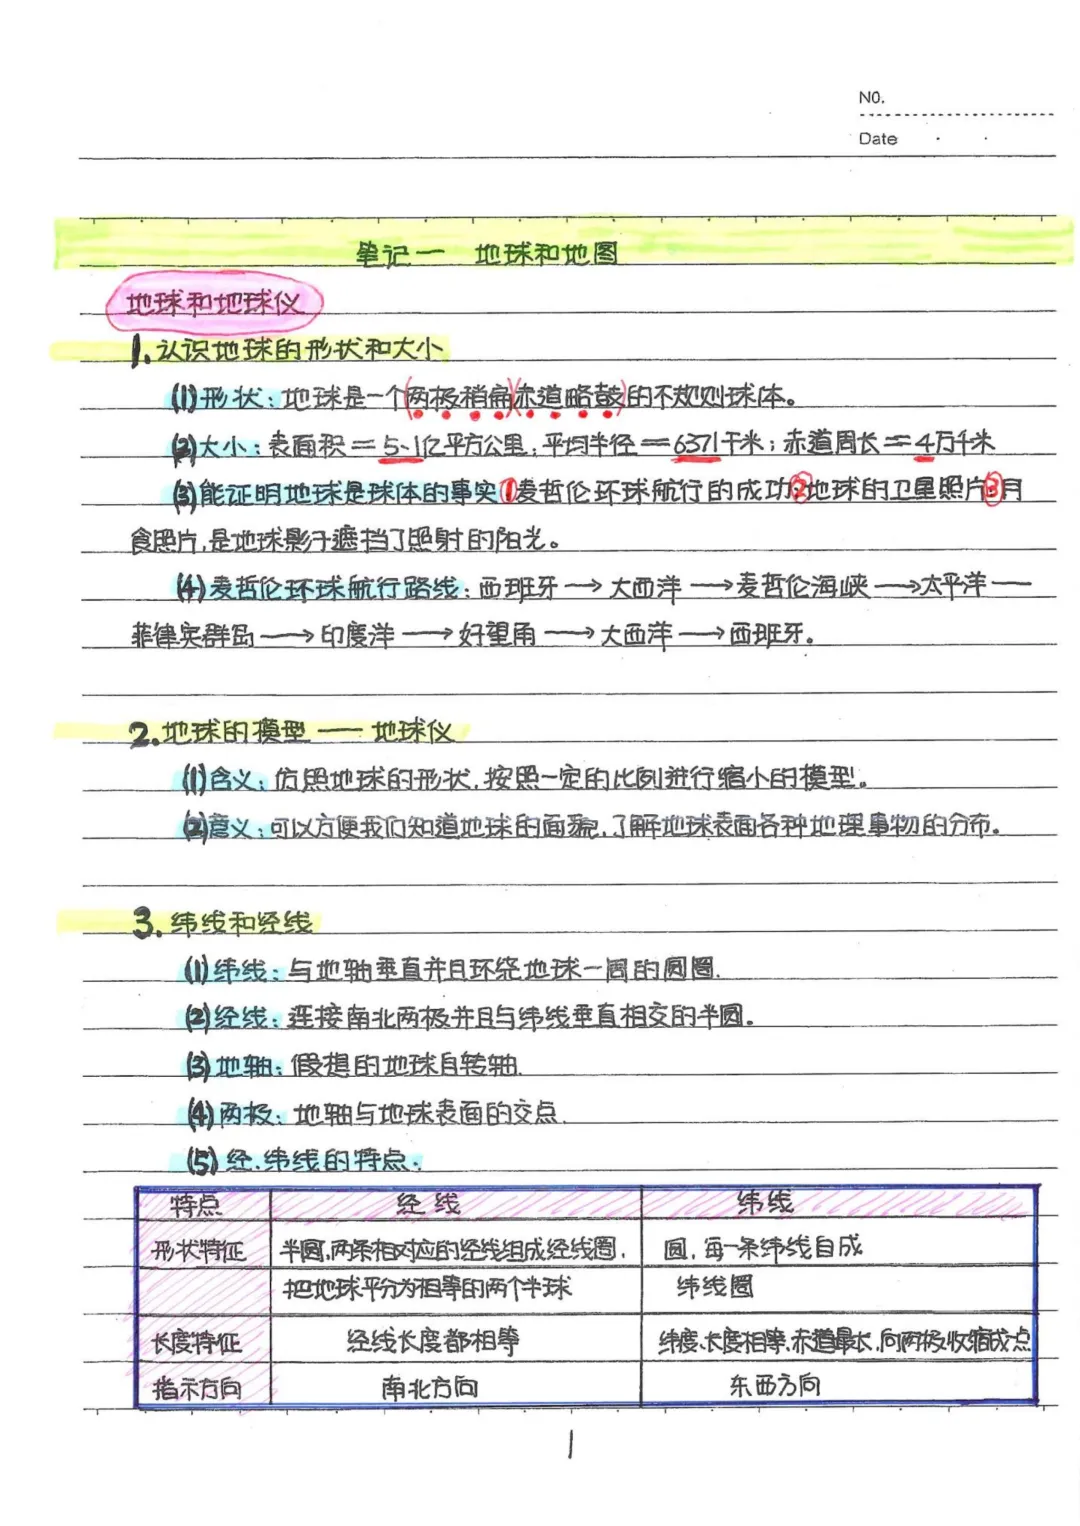 NO.
Date
笔记一 地球和地图
地球和地球仪
1.认识地球的形状和大小
(1)形状:地球是一个(两极稍扁)(赤道略鼓)的不规则球体。
(2)大小:表面积=5.1亿平方公里;平均半径=6371千米;赤道周长=4万千米
(3)能证明地球是球体的事实①麦哲伦环球航行的成功②地球的卫星照片③月
食照片,是地球影子遮挡了照射的阳光。
(4)麦哲伦环球航行路线:西班牙→大西洋→麦哲伦海峡→太平洋—
菲律宾群岛→印度洋→好望角→大西洋→西班牙。
2.地球的模型——地球仪
(1)含义:仿照地球的形状,按照一定的比例进行缩小的模型。
(2)意义:可以方便我们知道地球的面貌,了解地球表面各种地理事物的分布。
3.纬线和经线
(1)纬线:与地轴垂直并且环绕地球一周的圆圈.
(2)经线:连接南北两极并且与纬线垂直相交的半圆。
(3)地轴:假想的地球自转轴.
(4)两极:地轴与地球表面的交点.
(5)经.纬线的特点:
特点 经线 纬线
形状特征 半圆,两条相对应的经线组成经线圈, 圆,每一条纬线自成
把地球平分为相等的两个半球 纬线圈
长度特征 经线长度都相等 纬度、长度相等,赤道最大,向两极收缩成点
指示方向 南北方向 东西方向
1